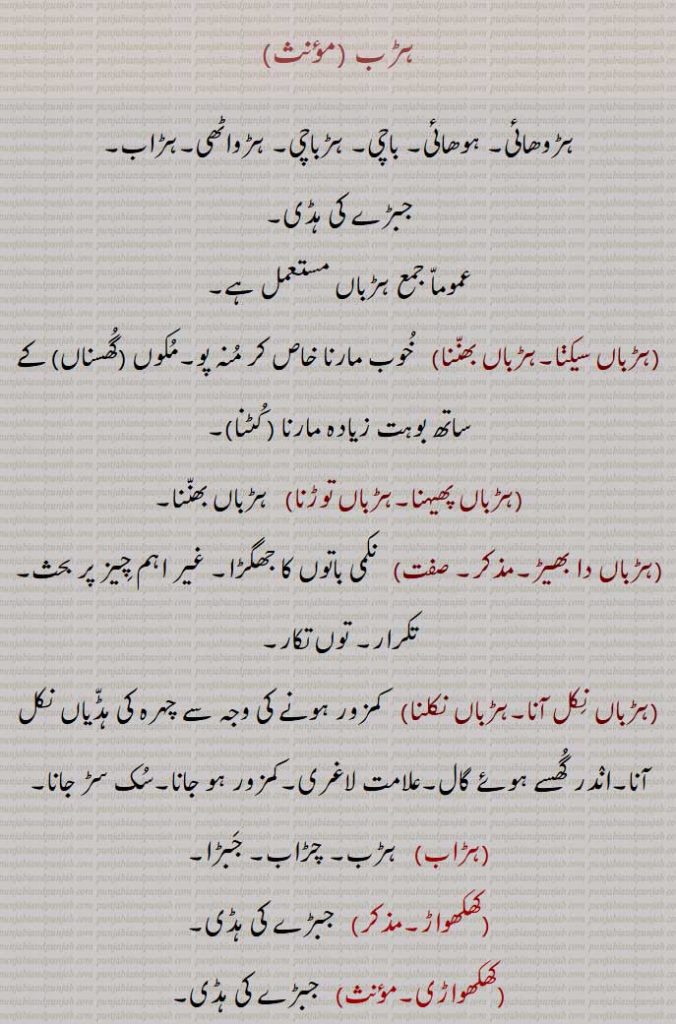 ہڑب (مؤنث)
ہڑوھائی۔ ہوھائی۔ باچی۔ ہڑباچی۔ ہڑواٹھی۔ ہڑاب۔
جبڑے کی ہڈی۔
عموماً جمع ہڑباں مستعمل ہے۔
(ہڑباں سیکݨا۔ ہڑباں بھنّنا) خُوب مارنا خاص کر مُنہ پو۔ مُکوں (گُھسناں) کے
ساتھ بوہت زیادہ مارنا (کُٹنا)۔
(ہڑباں پھیہنا۔ ہڑباں توڑنا) ہڑباں بھنّنا۔
(ہڑباں دا بھیڑ۔ مذکر۔ صفت) نکمی باتوں کا جھگڑا۔ غیر اہم چِیز پر بحث۔
تکرار۔ توں تکار۔
(ہڑباں نِکل آنا۔ ہڑباں نکلنا) کمزور ہونے کی وجہ سے چہرہ کی ہڈّیاں نکل
آنا۔ انْدر گُھسے ہوئے گال۔ علامت لاغری۔ کمزور ہو جانا۔ سُک سڑ جانا۔
(ہڑاب) ہڑب۔ چڑاب۔ جَبڑا۔
(کھکھواڑ۔ مذکر) جبڑے کی ہڈی۔
(کھکھواڑی۔ مؤنث) جبڑے کی ہڈی۔